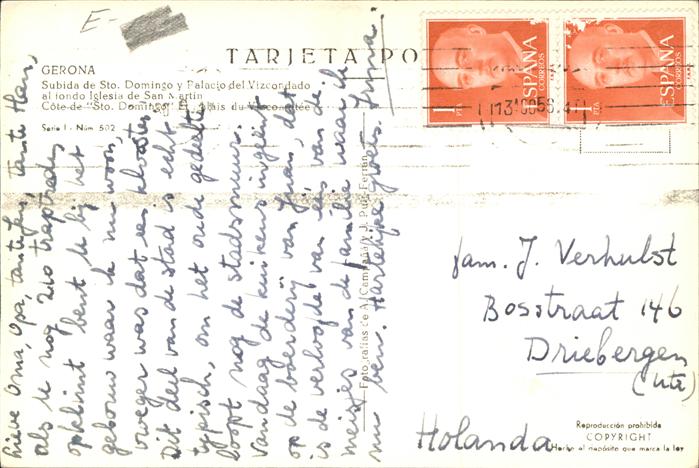 E-
TARJETA PO
GERONA
Subida de Sto. Domingo y Palacio del Vizcondado
al fondo Iglesia de San Martín
Côte de "Sto. Domingo" Palais du Vizcomtée
Serie I - Núm. 502
1
PTA
ESPAÑA
CORREOS
1
PTA
ESPAÑA
CORREOS
Lieve Oma, Opa, tante Jas, Tante Han,
als u nog 200 traptreden
opklimt bent u bij het
gebouw waar ik nu woon,
vroeger was dat een klooster
Dit deel van de stad is echt
typisch, om het oude gedeelte
loopt nog de stadsmuur.
Vandaag de kuikens ingeënt
op de boerderij van Juan, dat
is de verloofde van een van de
meisjes van de familie waar ik
nu ben. Hartelijke groets
fam. J. Verhulst
Bosstraat 146
Driebergen
(Utr)
Holanda
Reproducción prohibida
COPYRIGHT
Hecho el depósito que marca la ley